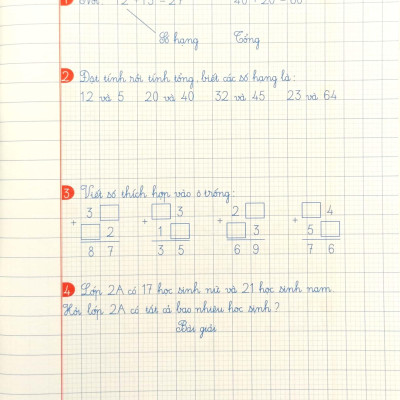 1 Nối: 12 + 15 = 27
Số hạng Tổng
2 Đặt tính rồi tính tổng, biết các số hạng là:
12 và 5 20 và 40 32 và 45 23 và 64
3 Viết số thích hợp vào ô trống:
+ 3 + 3 + 2 + 4
2 1 3 5
8 7 3 5 6 9 7 6
4 Lớp 2A có 17 học sinh nữ và 21 học sinh nam.
Hỏi lớp 2A có tất cả bao nhiêu học sinh?
Bài giải